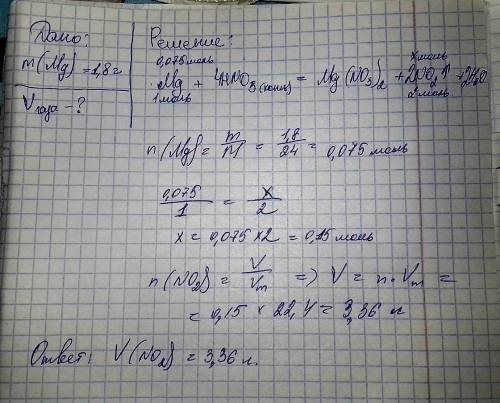 Дано:
m(Mg) = 1,8 г
V газа - ?
Решение:
0,075 моль х моль
Mg + 4HNO3(конц) = Mg(NO3)2 + 2NO2↑ + 2H2O
1 моль 2 моль
n(Mg) = m/M = 1,8/24 = 0,075 моль
0,075/1 = x/2
x = 0,075 × 2 = 0,15 моль
n(NO2) = V/Vm => V = n · Vm =
= 0,15 × 22,4 = 3,36 л
Ответ: V(NO2) = 3,36 л.